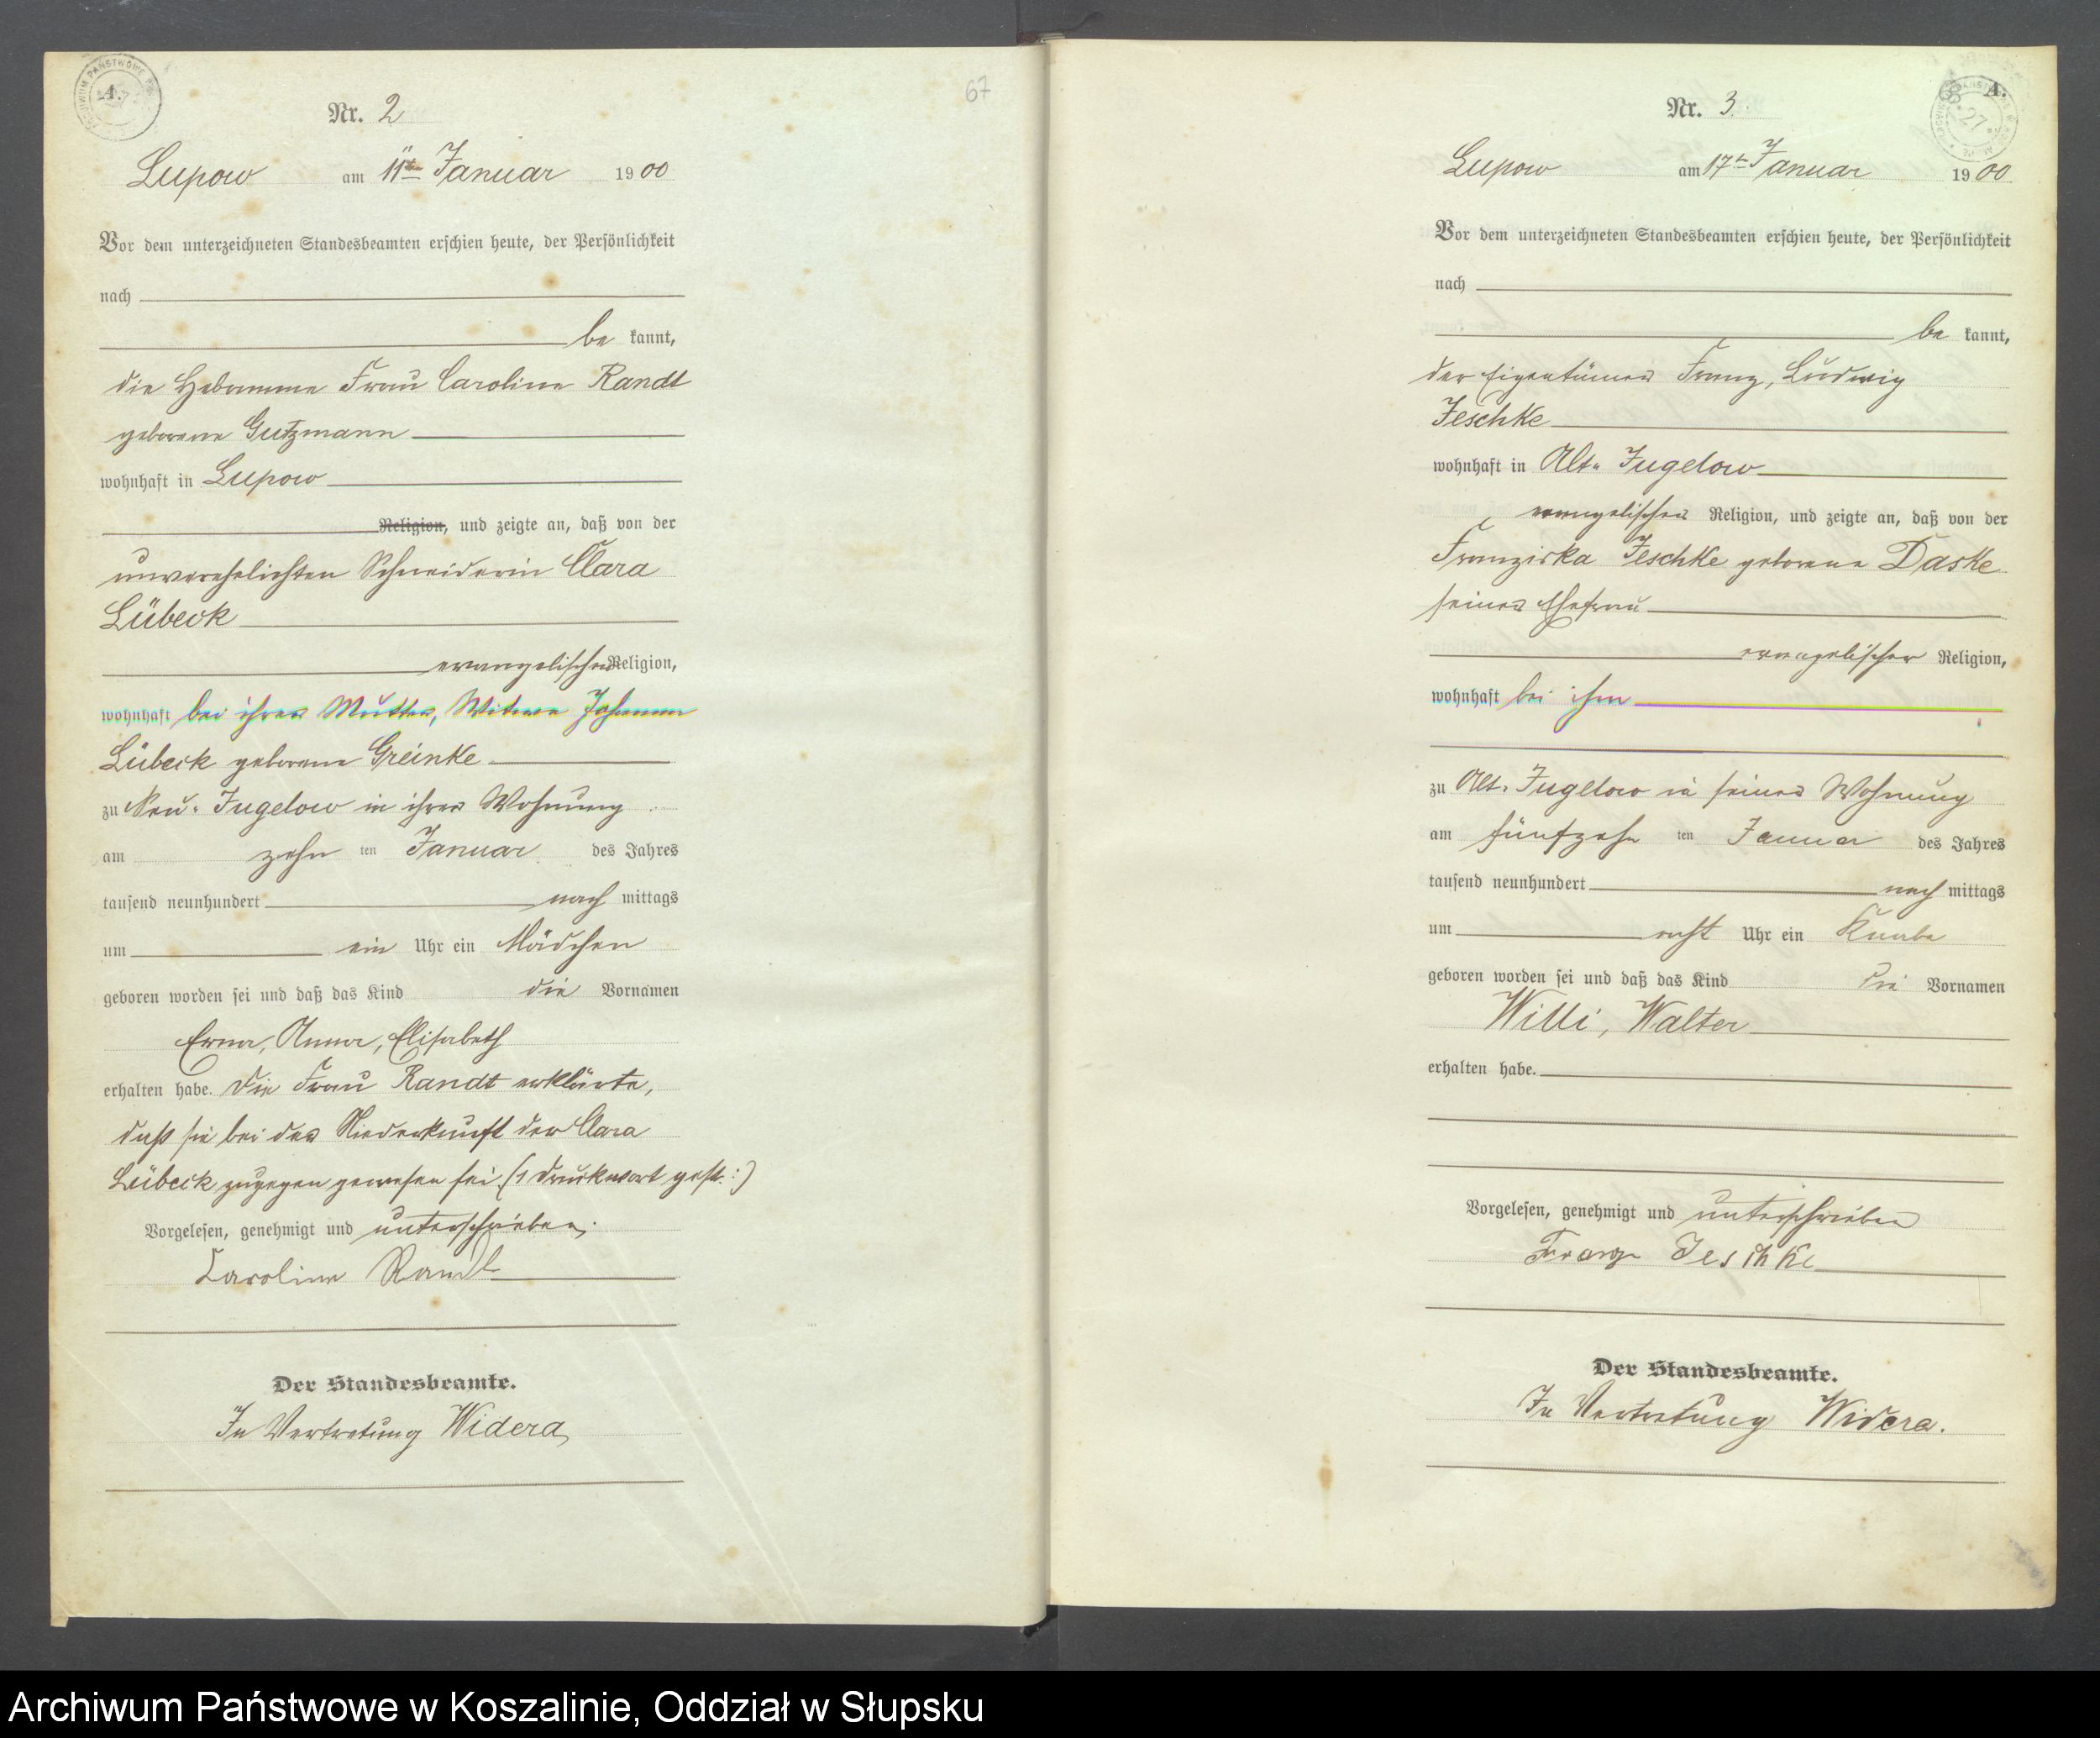 A.
67
Nr. 2
Lupow am 11ten Januar 1900
Vor dem unterzeichneten Standesbeamten erschien heute, der Persönlichkeit
nach
be kannt,
die Hebamme Frau Caroline Randt
geborene Gutzmann
wohnhaft in Lupow
Religion, und zeigte an, daß von der
unverehelichten Schneiderin Clara
Lübeck
evangelischer Religion,
wohnhaft bei ihrer Mutter, Witwe Johanna
Lübeck geborene Greinke
zu Neu-Jugelow in ihrer Wohnung
am zehn ten Januar des Jahres
tausend neunhundert nach mittags
um ein Uhr ein Mädchen
geboren worden sei und daß das Kind die Vornamen
Erna, Anna, Elisabeth
erhalten habe. Die Frau Randt erklärte,
daß sie bei der Niederkunft der Clara
Lübeck zugegen gewesen sei. (1 Druckwort gestr.:)
Vorgelesen, genehmigt und unterschrieben.
Caroline Randt
Der Standesbeamte.
In Vertretung Widera
A.
Nr. 3.
Lupow am 17ten Januar 1900
Vor dem unterzeichneten Standesbeamten erschien heute, der Persönlichkeit
nach
be kannt,
der Eigentümer Franz, Ludwig
Jeschke
wohnhaft in Alt-Jugelow
evangelischer Religion, und zeigte an, daß von der
Franziska Jeschke geborene Daske
seiner Ehefrau
evangelischer Religion,
wohnhaft bei ihm
zu Alt-Jugelow in seiner Wohnung
am fünfzehn ten Januar des Jahres
tausend neunhundert nach mittags
um acht Uhr ein Knabe
geboren worden sei und daß das Kind die Vornamen
Willi, Walter
erhalten habe.
Vorgelesen, genehmigt und unterschrieben
Franz Jeschke
Der Standesbeamte.
In Vertretung Widera.
Archiwum Państwowe w Koszalinie, Oddział w Słupsku